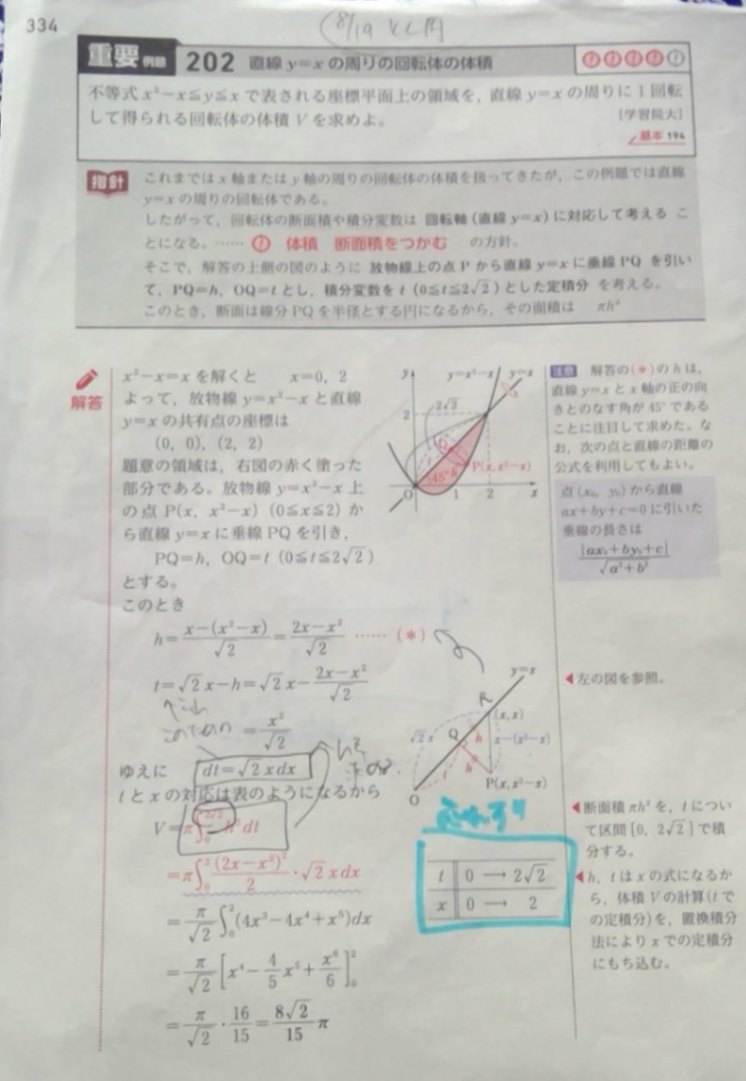 334
重要 例題 202 直線 y=x の周りの回転体の体積
不等式 x²−x≦y≦x で表される座標平面上の領域を, 直線 y=x の周りに1回転
して得られる回転体の体積 V を求めよ。
[学習院大]
基本 194
指針
これまではx軸またはy軸の周りの回転体の体積を扱ってきたが, この例題では直線
y=x の周りの回転体である。
したがって, 回転体の断面積や積分変数は 回転軸(直線 y=x)に対応して考える こ
とになる。…… 体積 断面積をつかむ の方針。
そこで, 解答の上側の図のように 放物線上の点Pから直線 y=x に垂線 PQ を引い
て, PQ=h, OQ=t とし, 積分変数を t (0≦t≦2√2) とした定積分 を考える。
このとき, 断面は線分 PQ を半径とする円になるから, その面積は πh²
解答
x²−x=x を解くと x=0, 2
よって, 放物線 y=x²−x と直線
y=x の共有点の座標は
(0, 0), (2, 2)
題意の領域は, 右図の赤く塗った
部分である。放物線 y=x²−x 上
の点 P(x, x²−x) (0≦x≦2) か
ら直線 y=x に垂線 PQ を引き,
PQ=h, OQ=t (0≦t≦2√2)
とする。
このとき
h=x−(x²−x)/√2=2x−x²/√2 …… (*)
t=√2x−h=√2x−2x−x²/√2
=x²/√2
ゆえに dt=√2xdx
tとxの対応は表のようになるから
V=π∫₀^{2√2}h²dt
=π∫₀²(2x−x²)²/2・√2xdx
=π/√2∫₀²(4x³−4x⁴+x⁵)dx
=π/√2[x⁴−4/5x⁵+x⁶/6]₀²
=π/√2・16/15=8√2/15π
y
y=x²−x
y=x
2
2√2
Q
h
t
P(x, x²−x)
45°
O
1
2
x
y=x
R
(x, x)
√2x
Q
h
x−(x²−x)
t
h
P(x, x²−x)
O
t 0 → 2√2
x 0 → 2
注意 解答の(*)のhは,
直線 y=x とx軸の正の向
きとのなす角が45°である
ことに注目して求めた。な
お, 次の点と直線の距離の
公式を利用してもよい。
点(x₀, y₀)から直線
ax+by+c=0 に引いた
垂線の長さは
|ax₀+by₀+c|/√a²+b²
◀左の図を参照。
◀断面積 πh² を, t につい
て区間 [0, 2√2] で積
分する。
◀h, t はxの式になるか
ら, 体積Vの計算(tで
の定積分)を, 置換積分
法によりxでの定積分
にもち込む。